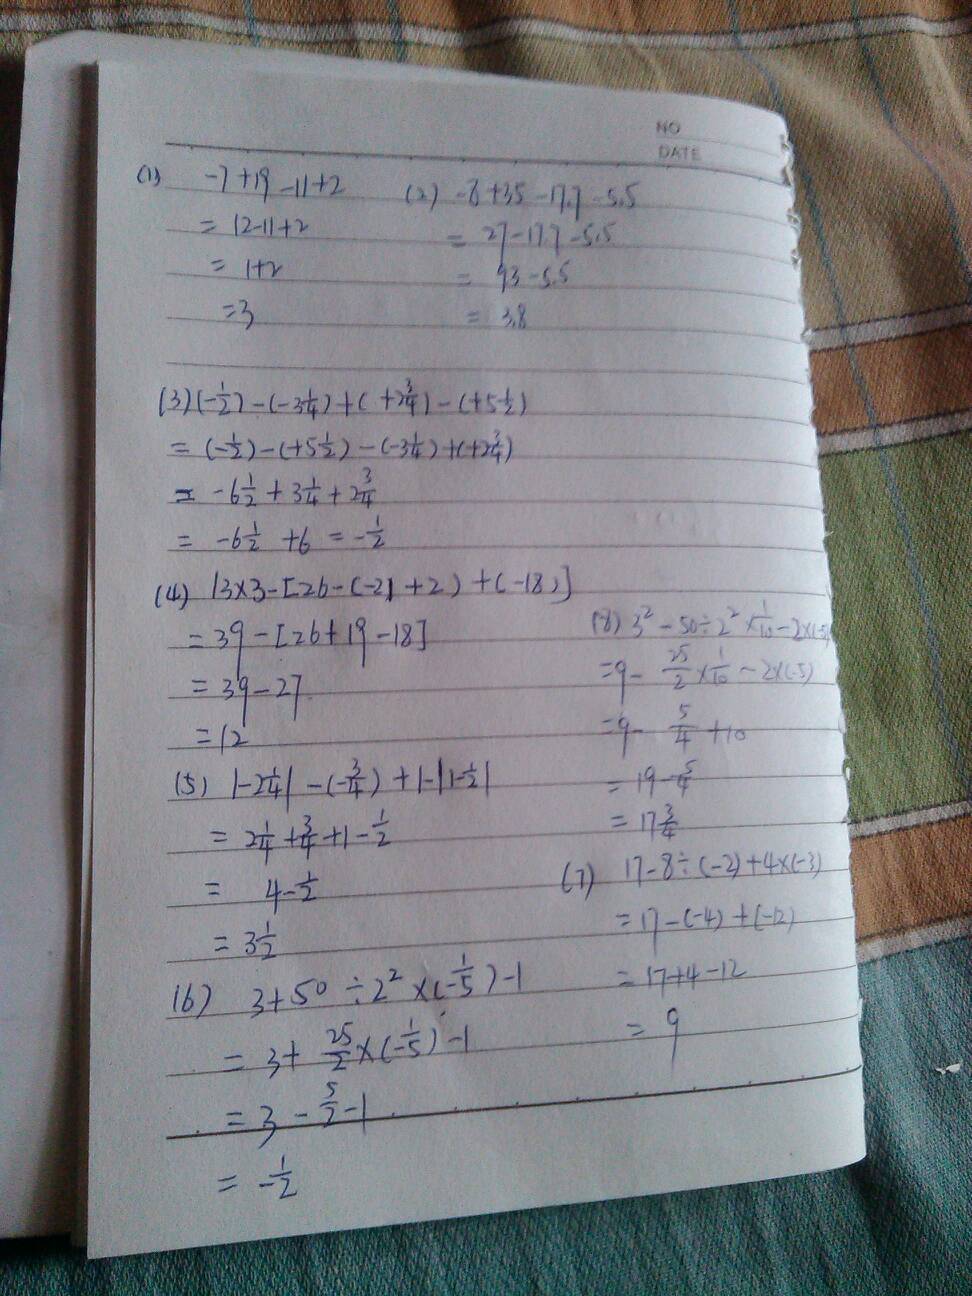 NO
DATE
(1) -7+19-11+2
= 12-11+2
= 1+2
=3
(2) -8+35-17.7-5.5
= 27-17.7-5.5
= 9.3-5.5
= 3.8
(3) (-1/2)-(-3 1/4)+(+2 3/4)-(+5 1/2)
= (-1/2)-(+5 1/2)-(-3 1/4)+(+2 3/4)
= -6 1/2+3 1/4+2 3/4
= -6 1/2+6=-1/2
(4) 13×3-[26-(-21+2)+(-18)]
=39-[26+19-18]
=39-27
=12
(5) |-2 1/4|-(-3/4)+1-|1-1/2|
= 2 1/4+3/4+1-1/2
= 4-1/2
= 3 1/2
(6) 3+50÷2²×(-1/5)-1
= 3+25/2×(-1/5)-1
= 3-5/2-1
= -1/2
(8) 3²-50÷2²×1/10-2×(-5)
=9-25/2×1/10-2×(-5)
=9-5/4+10
= 19-5/4
= 17 3/4
(7) 17-8÷(-2)+4×(-3)
=17-(-4)+(-12)
=17+4-12
= 9